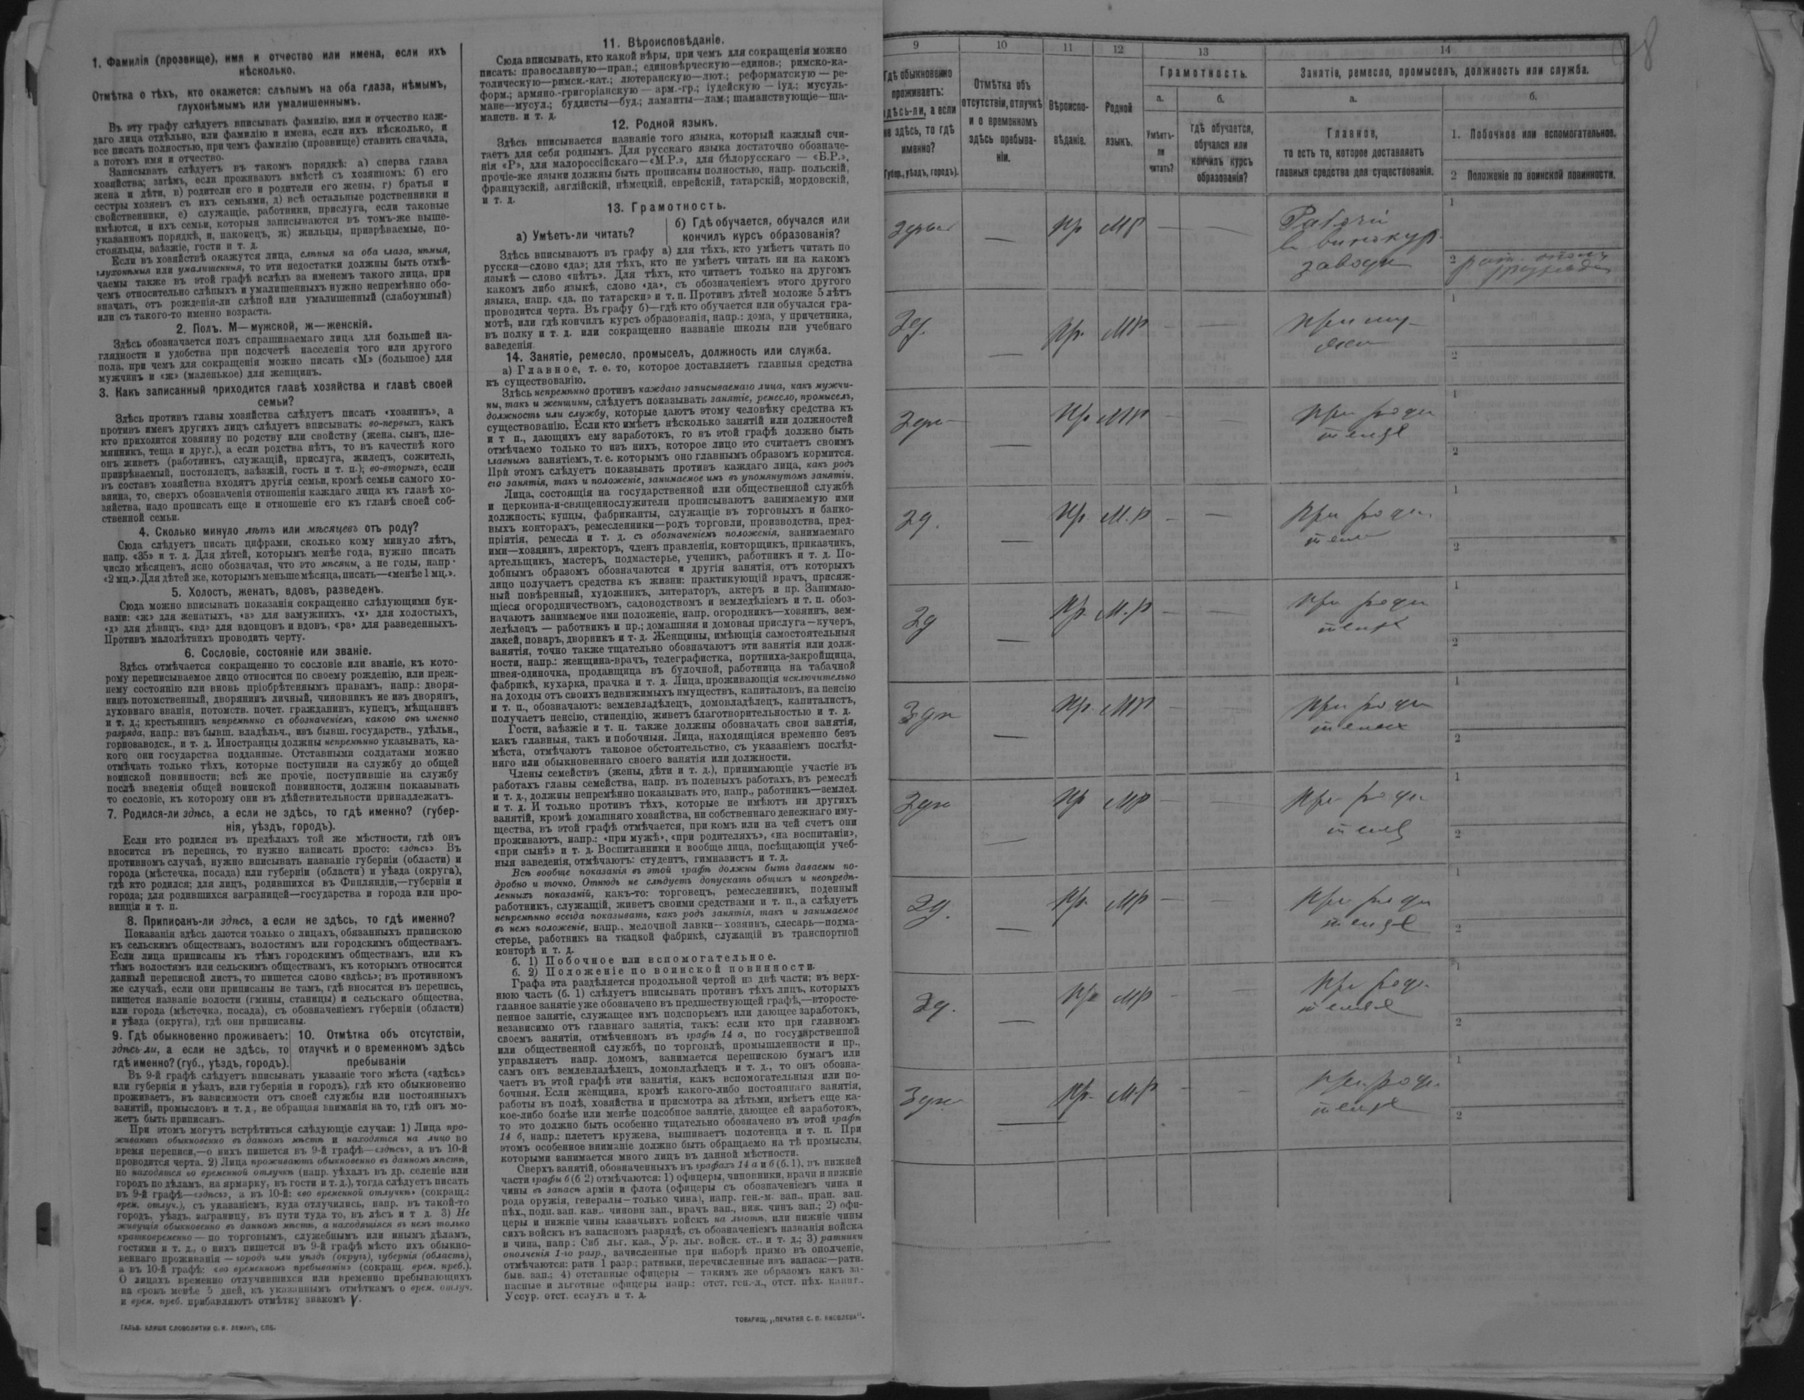 1. Фамилія (прозвище), имя и отчество или имена, если ихъ
нѣсколько.
Отмѣтка о тѣхъ, кто окажется: слѣпымъ на оба глаза, нѣмымъ,
глухонѣмымъ или умалишеннымъ.
Въ эту графу слѣдуетъ вписывать фамилію, имя и отчество каж-
даго лица отдѣльно, или фамилію и имена, если ихъ нѣсколько, и
все писать полностью, при чемъ фамилію (прозвище) ставить сначала,
а потомъ имя и отчество.
Записывать слѣдуетъ въ такомъ порядкѣ: а) сперва глава
хозяйства; затѣмъ, если проживаютъ вмѣстѣ съ хозяиномъ: б) его
жена и дѣти, в) родители его и родители его жены, г) братья и
сестры хозяевъ съ ихъ семьями, д) всѣ остальные родственники и
свойственники, е) служащіе, работники, прислуга, если таковые
имѣются, и ихъ семьи, которыя записываются въ томъ-же выше-
указанномъ порядкѣ, и, наконецъ, ж) жильцы, призрѣваемые, по-
стояльцы, заѣзжіе, гости и т. д.
Если въ хозяйствѣ окажутся лица, слѣпыя на оба глаза, нѣмыя,
глухонѣмыя или умалишенныя, то эти недостатки должны быть отмѣ-
чаемы также въ этой графѣ вслѣдъ за именемъ такого лица, при
чемъ относительно слѣпыхъ и умалишенныхъ нужно непремѣнно обо-
значать, отъ рожденія-ли слѣпой или умалишенный (слабоумный)
или съ такого-то именно возраста.
2. Полъ. М—мужской, ж—женскій.
Здѣсь обозначается полъ спрашиваемаго лица для большей на-
глядности и удобства при подсчетѣ населенія того или другого
пола, при чемъ для сокращенія можно писать «М» (большое) для
мужчинъ и «ж» (маленькое) для женщинъ.
3. Какъ записанный приходится главѣ хозяйства и главѣ своей
семьи?
Здѣсь противъ главы хозяйства слѣдуетъ писать «хозяинъ», а
противъ именъ другихъ лицъ слѣдуетъ вписывать: во-первыхъ, какъ
кто приходится хозяину по родству или свойству (жена, сынъ, пле-
мянникъ, теща и друг.), а если родства нѣтъ, то въ качествѣ кого
онъ живетъ (работникъ, служащій, прислуга, жилецъ, сожитель,
призрѣваемый, постоялецъ, заѣзжій, гость и т. п.); во-вторыхъ, если
въ составъ хозяйства входятъ другія семьи, кромѣ семьи самого хо-
зяина, то, сверхъ обозначенія отношенія каждаго лица къ главѣ хо-
зяйства, надо прописать еще и отношеніе его къ главѣ своей соб-
ственной семьи.
4. Сколько минуло лѣтъ или мѣсяцевъ отъ роду?
Сюда слѣдуетъ писать цифрами, сколько кому минуло лѣтъ,
напр. «35» и т. д. Для дѣтей, которымъ менѣе года, нужно писать
число мѣсяцевъ, ясно обозначая, что это мѣсяцы, а не годы, напр.
«2 мц.». Для дѣтей же, которымъ меньше мѣсяца, писать—«менѣе 1 мц.».
5. Холостъ, женатъ, вдовъ, разведенъ.
Сюда можно вписывать показанія сокращенно слѣдующими бук-
вами: «ж» для женатыхъ, «з» для замужнихъ, «х» для холостыхъ,
«д» для дѣвицъ, «вд» для вдовцовъ и вдовъ, «ра» для разведенныхъ.
Противъ малолѣтнихъ проводить черту.
6. Сословіе, состояніе или званіе.
Здѣсь отмѣчается сокращенно то сословіе или званіе, къ кото-
рому переписываемое лицо относится по своему рожденію, или преж-
нему состоянію или вновь пріобрѣтеннымъ правамъ, напр.: дворя-
нинъ потомственный, дворянинъ личный, чиновникъ не изъ дворянъ,
духовнаго званія, потомств. почет. гражданинъ, купецъ, мѣщанинъ
и т. д.; крестьянинъ непремѣнно съ обозначеніемъ, какою онъ именно
разряда, напр.: изъ бывш. владѣльч., изъ бывш. государств., удѣльн.,
горнозаводск., и т. д. Иностранцы должны непремѣнно указывать, ка-
кого они государства подданные. Отставными солдатами можно
отмѣчать только тѣхъ, которые поступили на службу до общей
воинской повинности; всѣ же прочіе, поступившіе на службу
послѣ введенія общей воинской повинности, должны показывать
то сословіе, къ которому они въ дѣйствительности принадлежатъ.
7. Родился-ли здѣсь, а если не здѣсь, то гдѣ именно? (губер-
нія, уѣздъ, городъ).
Если кто родился въ предѣлахъ той же мѣстности, гдѣ онъ
вносится въ перепись, то нужно написать просто: «здѣсь». Въ
противномъ случаѣ, нужно вписывать названіе губерніи (области) и
города (мѣстечка, посада) или губерніи (области) и уѣзда (округа),
гдѣ кто родился; для лицъ, родившихся въ Финляндіи,—губерніи и
города; для родившихся заграницей—государства и города или про-
винціи и т. п.
8. Приписанъ-ли здѣсь, а если не здѣсь, то гдѣ именно?
Показанія здѣсь даются только о лицахъ, обязанныхъ припискою
къ сельскимъ обществамъ, волостямъ или городскимъ обществамъ.
Если лица приписаны къ тѣмъ городскимъ обществамъ, или къ
тѣмъ волостямъ или сельскимъ обществамъ, къ которымъ относится
данный переписной листъ, то пишется слово «здѣсь»; въ противномъ
же случаѣ, если они приписаны не тамъ, гдѣ вносятся въ перепись,
пишется названіе волости (гмины, станицы) и сельскаго общества,
или города (мѣстечка, посада), съ обозначеніемъ губерніи (области)
и уѣзда (округа), гдѣ они приписаны.
9. Гдѣ обыкновенно проживаетъ:
здѣсь ли, а если не здѣсь, то
гдѣ именно? (губ., уѣздъ, городъ).
10. Отмѣтка объ отсутствіи,
отлучкѣ и о временномъ здѣсь
пребываніи
Въ 9-й графѣ слѣдуетъ вписывать указаніе того мѣста («здѣсь»
или губернія и уѣздъ, или губернія и городъ), гдѣ кто обыкновенно
проживаетъ, въ зависимости отъ своей службы или постоянныхъ
занятій, промысловъ и т. д., не обращая вниманія на то, гдѣ онъ мо-
жетъ быть приписанъ.
При этомъ могутъ встрѣтиться слѣдующіе случаи: 1) Лица про-
живаютъ обыкновенно въ данномъ мѣстѣ и находятся на лицо во
время переписи,—о нихъ пишется въ 9-й графѣ—«здѣсь», а въ 10-й
проводится черта. 2) Лица проживаютъ обыкновенно въ данномъ мѣстѣ,
но находятся во временной отлучкѣ (напр. уѣхалъ въ др. селеніе или
городъ по дѣламъ, на ярмарку, въ гости и т. д.), тогда слѣдуетъ писать
въ 9-й графѣ—«здѣсь», а въ 10-й: «во временной отлучкѣ» (сокращ.:
врем. отлуч.), съ указаніемъ, куда отлучились, напр. въ такой-то
городъ, уѣздъ, заграницу, въ пути туда то, въ лѣсъ и т д. 3) Не
живущія обыкновенно въ данномъ мѣстѣ, а находящіяся въ немъ только
кратковременно — по торговымъ, служебнымъ или инымъ дѣламъ,
гостями и т. д., о нихъ пишется въ 9-й графѣ мѣсто ихъ обыкно-
веннаго проживанія — городъ или уѣздъ (округъ), губернія (область),
а въ 10-й графѣ: «во временномъ пребываніи» (сокращ. врем. преб.).
О лицахъ временно отлучившихся или временно пребывающихъ
на срокъ менѣе 5 дней, къ указаннымъ отмѣткамъ о врем. отлуч.
и врем. преб. прибавляютъ отмѣтку знакомъ V.
ГАЛЬВ. КЛИШЕ СЛОВОЛИТНИ О. И. ЛЕМАНЪ, СПБ.
11. Вѣроисповѣданіе.
Сюда вписывать, кто какой вѣры, при чемъ для сокращенія можно
писать: православную—прав.; единовѣрческую—единов.; римско-ка-
толическую—римск.-кат.; лютеранскую—лют.; реформатскую — ре-
форм.; армяно-григоріанскую — арм.-гр.; іудейскую — іуд.; мусуль-
мане—мусул.; буддисты—буд.; ламаиты—лам.; шаманствующіе—ша-
манств. и т. д.
12. Родной языкъ.
Здѣсь вписывается названіе того языка, который каждый счи-
таетъ для себя роднымъ. Для русскаго языка достаточно обозначе-
нія «Р», для малороссійскаго—«М.Р.», для бѣлорусскаго — «Б.Р.»,
прочіе-же языки должны быть прописаны полностью, напр. польскій,
французскій, англійскій, нѣмецкій, еврейскій, татарскій, мордовскій,
и т. д.
13. Грамотность.
а) Умѣетъ-ли читать?
б) Гдѣ обучается, обучался или
кончилъ курсъ образованія?
Здѣсь вписываютъ въ графу а) для тѣхъ, кто умѣетъ читать по
русски—слово «да»; для тѣхъ, кто не умѣетъ читать ни на какомъ
языкѣ — слово «нѣтъ». Для тѣхъ, кто читаетъ только на другомъ
какомъ либо языкѣ, слово «да», съ обозначеніемъ этого другого
языка, напр. «да, по татарски» и т. п. Противъ дѣтей моложе 5 лѣтъ
проводится черта. Въ графу б)—гдѣ кто обучается или обучался гра-
мотѣ, или гдѣ кончилъ курсъ образованія, напр.: дома, у причетника,
въ полку и т. д. или сокращенно названіе школы или учебнаго
заведенія.
14. Занятіе, ремесло, промыселъ, должность или служба.
а) Главное, т. е. то, которое доставляетъ главныя средства
къ существованію.
Здѣсь непремѣнно противъ каждаго записываемаго лица, какъ мужчи-
ны, такъ и женщины, слѣдуетъ показывать занятіе, ремесло, промыселъ,
должность или службу, которые даютъ этому человѣку средства къ
существованію. Если кто имѣетъ нѣсколько занятій или должностей
и т п., дающихъ ему заработокъ, то въ этой графѣ должно быть
отмѣчаемо только то изъ нихъ, которое лицо это считаетъ своимъ
главнымъ занятіемъ, т. е. которымъ оно главнымъ образомъ кормится.
При этомъ слѣдуетъ показывать противъ каждаго лица, какъ родъ
его занятія, такъ и положеніе, занимаемое имъ въ упомянутомъ занятіи.
Лица, состоящія на государственной или общественной службѣ
и церковно-и-священнослужители прописываютъ занимаемую ими
должность; купцы, фабриканты, служащіе въ торговыхъ и банко-
выхъ конторахъ, ремесленники—родъ торговли, производства, пред-
пріятія, ремесла и т. д. съ обозначеніемъ положенія, занимаемаго
ими—хозяинъ, директоръ, членъ правленія, конторщикъ, приказчикъ,
артельщикъ, мастеръ, подмастерье, ученикъ, работникъ и т. д. По-
добнымъ образомъ обозначаются и другія занятія, отъ которыхъ
лицо получаетъ средства къ жизни: практикующій врачъ, присяж-
ный повѣренный, художникъ, литераторъ, актеръ и пр. Занимаю-
щіеся огородничествомъ, садоводствомъ и земледѣліемъ и т. п. обоз-
начаютъ занимаемое ими положеніе, напр. огородникъ—хозяинъ, зем-
ледѣлецъ — работникъ и пр.; домашняя и домовая прислуга—кучеръ,
лакей, поваръ, дворникъ и т. д. Женщины, имѣющія самостоятельныя
занятія, точно также тщательно обозначаютъ эти занятія или долж-
ности, напр.: женщина-врачъ, телеграфистка, портниха-закройщица,
швея-одиночка, продавщица въ булочной, работница на табачной
фабрикѣ, кухарка, прачка и т. д. Лица, проживающія исключительно
на доходы отъ своихъ недвижимыхъ имуществъ, капиталовъ, на пенсію
и т. п., обозначаютъ: землевладѣлецъ, домовладѣлецъ, капиталистъ,
получаетъ пенсію, стипендію, живетъ благотворительностью и т. д.
Гости, заѣзжіе и т. п. также должны обозначать свои занятія,
какъ главныя, такъ и побочныя. Лица, находящіяся временно безъ
мѣста, отмѣчаютъ таковое обстоятельство, съ указаніемъ послѣд-
няго или обыкновеннаго своего занятія или должности.
Члены семействъ (жены, дѣти и т. д.), принимающіе участіе въ
работахъ главы семейства, напр. въ полевыхъ работахъ, въ ремеслѣ
и т. д., должны непремѣнно показывать это, напр., работникъ—землед.
и т. д. И только противъ тѣхъ, которые не имѣютъ ни другихъ
занятій, кромѣ домашняго хозяйства, ни собственнаго денежнаго иму-
щества, въ этой графѣ отмѣчается, при комъ или на чей счетъ они
проживаютъ, напр.: «при мужѣ», «при родителяхъ», «на воспитаніи»,
«при сынѣ» и т. д. Воспитанники и вообще лица, посѣщающія учеб-
ныя заведенія, отмѣчаютъ: студентъ, гимназистъ и т. д.
Всѣ вообще показанія въ этой графѣ должны быть даваемы по-
дробно и точно. Отнюдь не слѣдуетъ допускать общихъ и неопредѣ-
ленныхъ показаній, какъ-то: торговецъ, ремесленникъ, поденный
работникъ, служащій, живетъ своими средствами и т. п., а слѣдуетъ
непремѣнно всегда показывать, какъ родъ занятія, такъ и занимаемое
въ немъ положеніе, напр., мелочной лавки—хозяинъ, слесарь—подма-
стерье, работникъ на ткацкой фабрикѣ, служащій въ транспортной
конторѣ и т. д.
б. 1) Побочное или вспомогательное.
б. 2) Положеніе по воинской повинности.
Графа эта раздѣляется продольной чертой на двѣ части: въ верх-
нюю часть (б. 1) слѣдуетъ вписывать противъ тѣхъ лицъ, которыхъ
главное занятіе уже обозначено въ предшествующей графѣ,—второсте-
пенное занятіе, служащее имъ подспорьемъ или дающее заработокъ,
независимо отъ главнаго занятія, такъ: если кто при главномъ
своемъ занятіи, отмѣченномъ въ графѣ 14 а, по государственной
или общественной службѣ, по торговлѣ, промышленности и пр.,
управляетъ напр. домомъ, занимается перепискою бумагъ или
самъ онъ землевладѣлецъ, домовладѣлецъ и т. д., то онъ обозна-
чаетъ въ этой графѣ эти занятія, какъ вспомогательныя или по-
бочныя. Если женщина, кромѣ какого-либо постояннаго занятія,
работы въ полѣ, хозяйства и присмотра за дѣтьми, имѣетъ еще ка-
кое-либо болѣе или менѣе подсобное занятіе, дающее ей заработокъ,
то это должно быть особенно тщательно обозначено въ этой графѣ
14 б, напр.: плететъ кружева, вышиваетъ полотенца и т. п. При
этомъ особенное вниманіе должно быть обращаемо на тѣ промыслы,
которыми занимается много лицъ въ данной мѣстности.
Сверхъ занятій, обозначенныхъ въ графахъ 14 а и б (б. 1), въ нижней
части графы б (б 2) отмѣчаются: 1) офицеры, чиновники, врачи и нижніе
чины въ запасѣ арміи и флота (офицеры съ обозначеніемъ чина и
рода оружія, генералы—только чина), напр. ген.-м. зап., прап. зап.
пѣх., подп. зап. кав., чиновн зап., врачъ зап., ниж. чинъ зап.; 2) офи-
церы и нижніе чины казачьихъ войскъ на льготѣ, или нижніе чины
сихъ войскъ въ запасномъ разрядѣ, съ обозначеніемъ названія войска
и чина, напр.: Сиб льг. каз., Ур. льг. войск. ст., и т. д.; 3) ратники
ополченія 1-го разр., зачисленные при наборѣ прямо въ ополченіе,
отмѣчаются: ратн 1 разр.; ратники, перечисленные изъ запаса:—ратн.
быв. зап.; 4) отставные офицеры — такимъ же образомъ какъ за-
пасные и льготные офицеры напр.: отст. ген.-л., отст. пѣх. капит.,
Уссур. отст. есаулъ и т. д.
ТОВАРИЩ. „ПЕЧАТНЯ С. П. ЯКОВЛЕВА“.
8
9 10 11 12 13 14
Гдѣ обыкновенно
проживаетъ:
здѣсь-ли, а если
не здѣсь, то гдѣ
именно?
(Губер., уѣздъ, городъ).
Отмѣтка объ
отсутствіи, отлучкѣ
и о временномъ
здѣсь пребыва-
ніи.
Вѣроиспо-
вѣданіе.
Родной
языкъ.
Грамотность.
а.
Умѣетъ-
ли
читать?
б.
гдѣ обучается,
обучался или
кончилъ курсъ
образованія?
Занятіе, ремесло, промыселъ, должность или служба.
а.
Главное,
то есть то, которое доставляетъ
главныя средства для существованія.
б.
1. Побочное или вспомогательное.
2 Положеніе по воинской повинности.
— Пр МР — — 1
въ винокур.
заводѣ 2
Зд. — Пр. МР — — При му- 1
2
— Пр МР — — При роди 1
теляхъ 2
Зд. — Пр М.Р — — При роди 1
2
Зд — Пр. М.Р — — При роди 1
теляхъ 2
— Пр. МР — — При роди 1
теляхъ 2
— Пр МР — При роди 1
2
Зд. — Пр. МР — При роди 1
теляхъ 2
Зд. — Пр МР — — При роди 1
теляхъ 2
— Пр. М.Р — — При роди 1
теляхъ 2